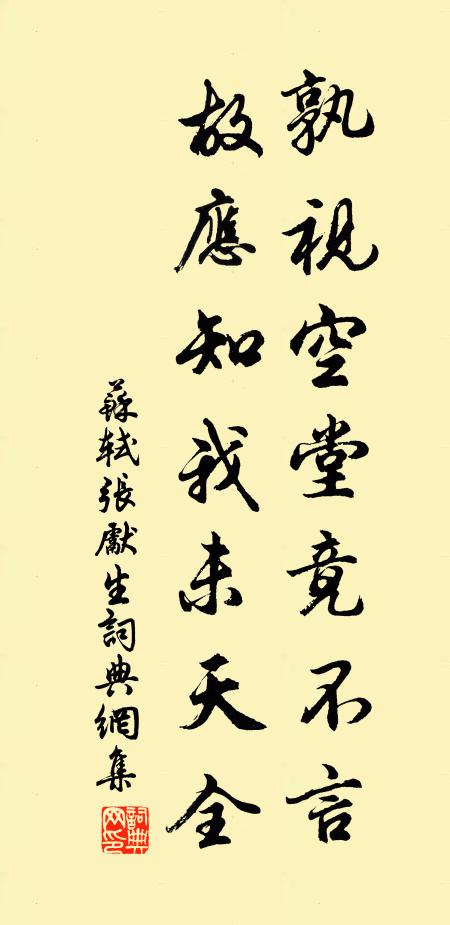 孰視空堂竟不言
故應知我未天全
蘇軾張獻生詞典網集
詞典網印